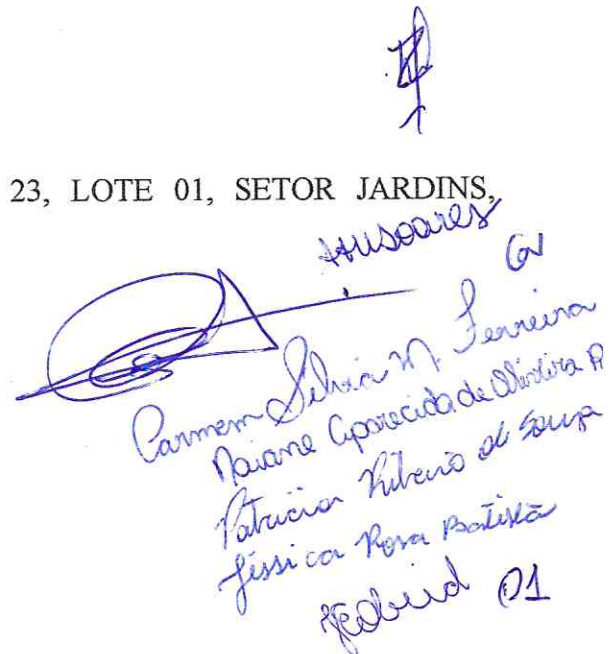 23, LOTE 01, SETOR JARDINS,
Carmem Silvia M. Ferreira
Naiane Aparecida de Oliveira
Patricia Ribeiro de Souza
Jéssica Rosa Batista
01